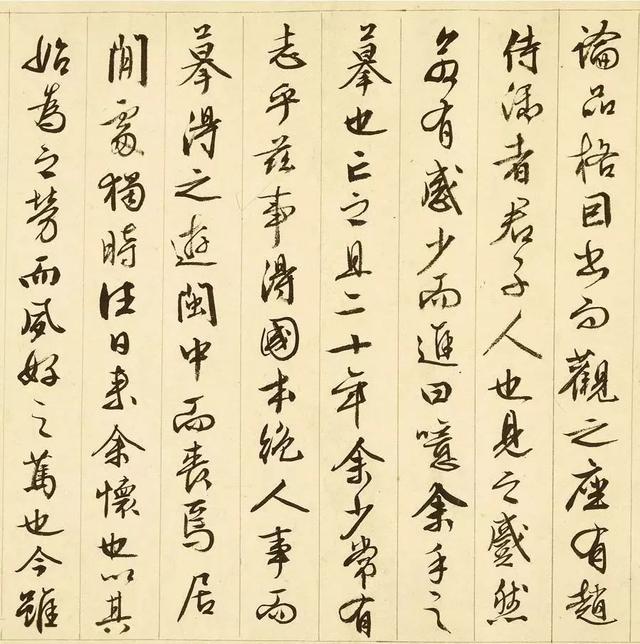 論品格因出而觀之座有趙
侍御者君子人也見之慼然
若有感少而進曰噫余手之
摹也亡之且二十年余少常有
志乎茲事得國本絕人事而
摹得之遊閩中而喪焉居
閒處獨時往日來余懷也以其
始為之勞而夙好之篤也今雖